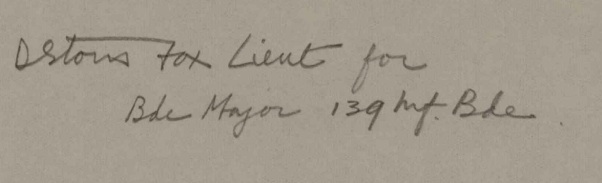 DStorrs Fox Lieut for
Bde Major 139 Inf. Bde.